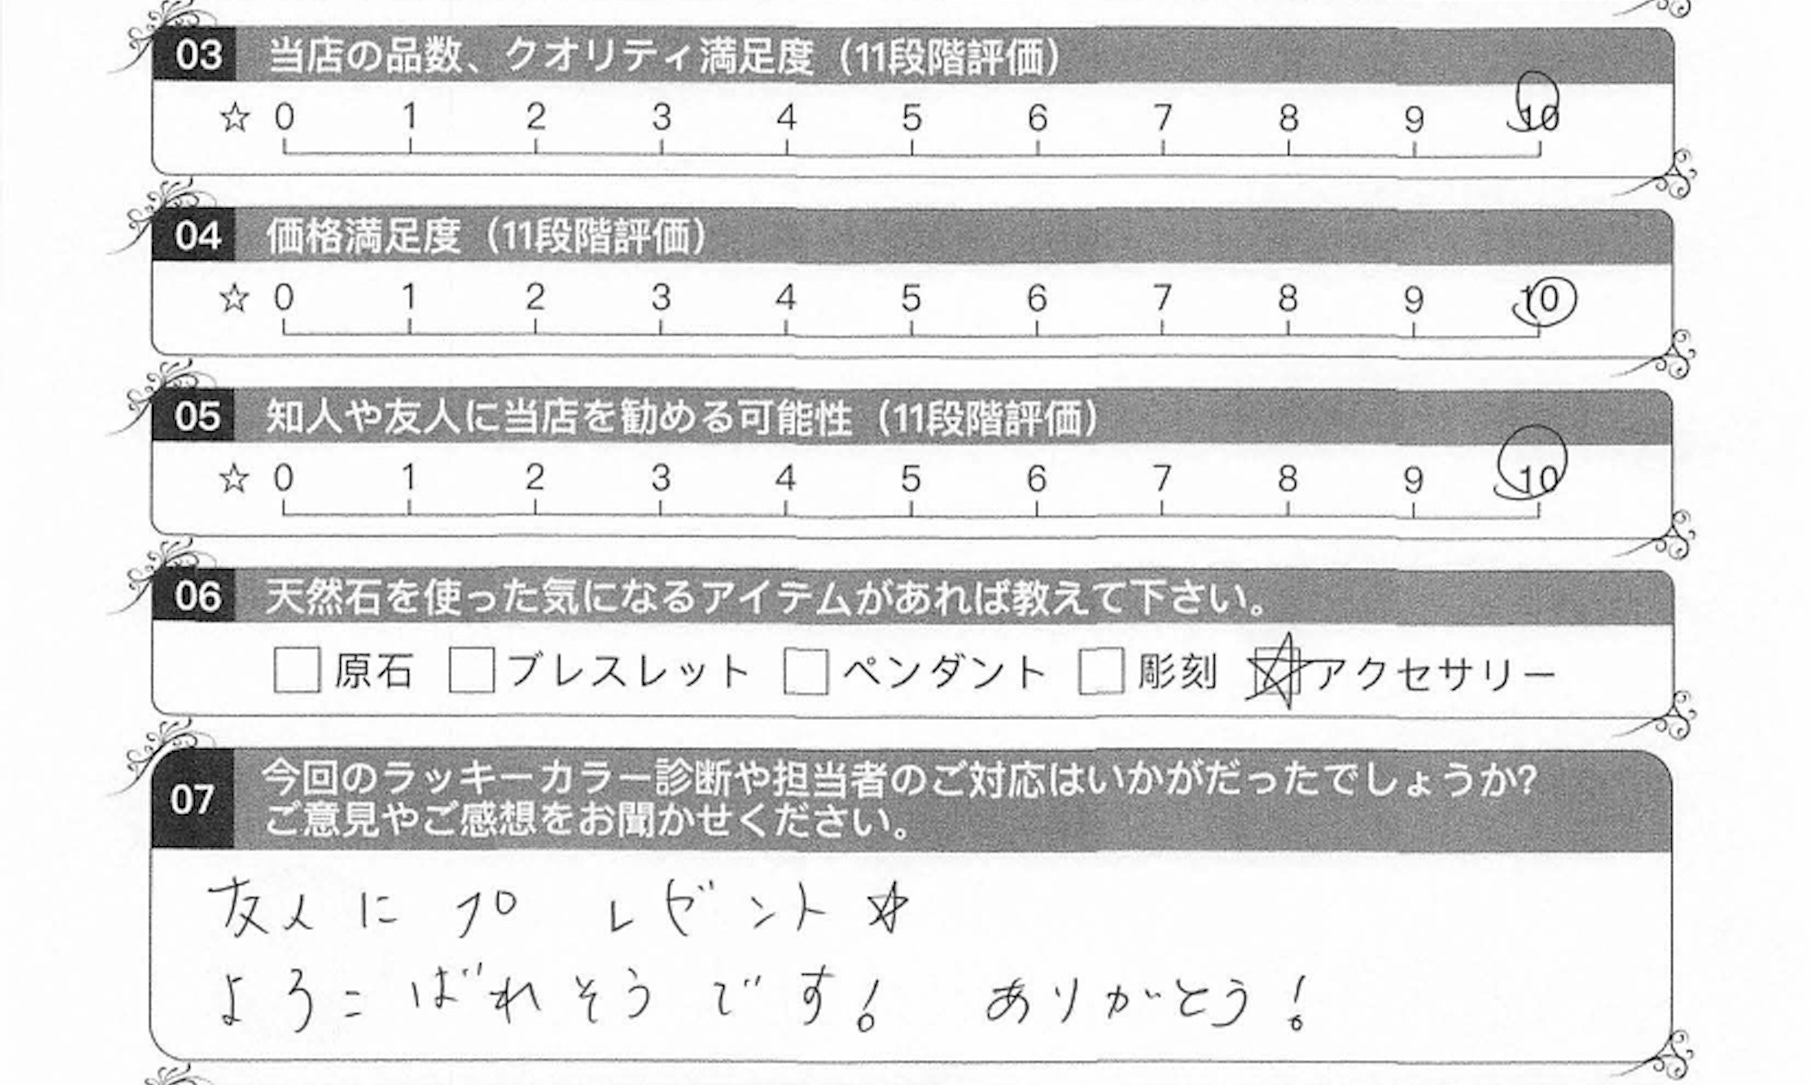 03 当店の品数、クオリティ満足度（11段階評価）
☆ 0 1 2 3 4 5 6 7 8 9 10
04 価格満足度（11段階評価）
☆ 0 1 2 3 4 5 6 7 8 9 10
05 知人や友人に当店を勧める可能性（11段階評価）
☆ 0 1 2 3 4 5 6 7 8 9 10
06 天然石を使った気になるアイテムがあれば教えて下さい。
□原石 □ブレスレット □ペンダント □彫刻 ☆アクセサリー
07 今回のラッキーカラー診断や担当者のご対応はいかがだったでしょうか?
ご意見やご感想をお聞かせください。
友人に プレゼント☆
よろこばれそうです! ありがとう!